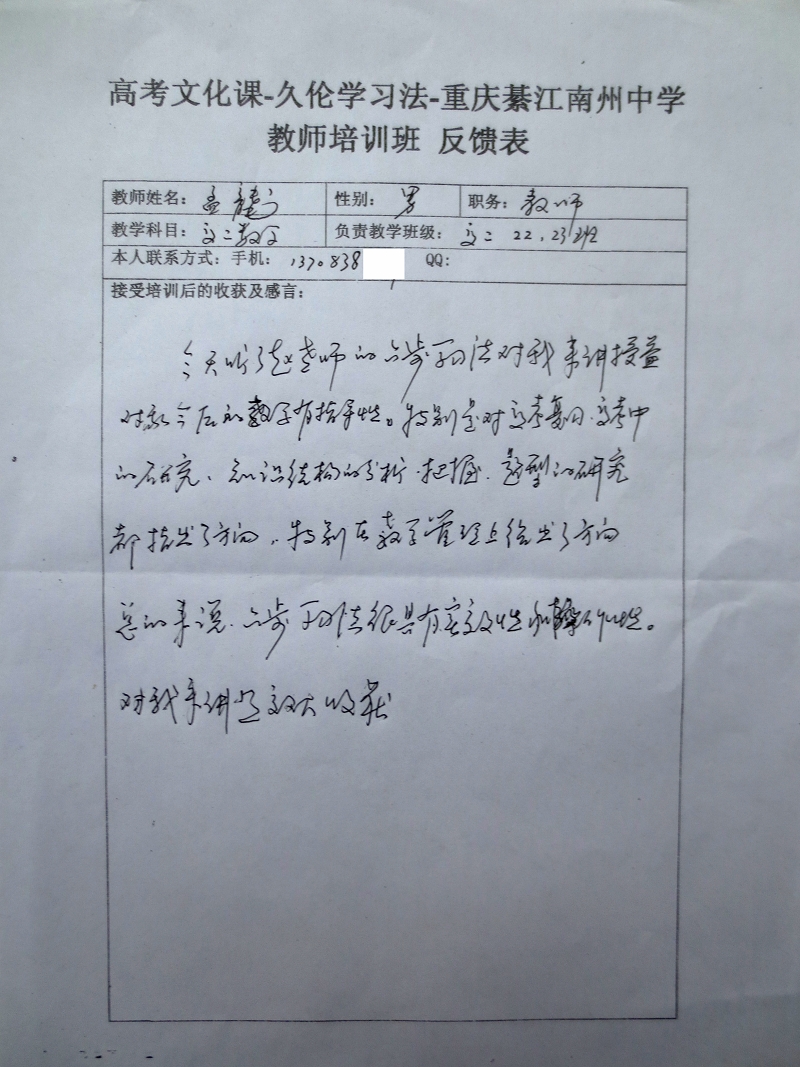 高考文化课-久伦学习法-重庆綦江南州中学
教师培训班 反馈表
教师姓名: 孟 性别: 男 职务: 教师
教学科目: 高二数学 负责教学班级: 高二 22,23班
本人联系方式: 手机: 1370838 QQ:
接受培训后的收获及感言:
今天听了赵老师的六步学习法对我来讲授益
对我今后的教学有指导性。特别是对高考复习、高考中
的研究、知识结构的分析·把握、题型的研究
都指出了方向,特别在教学管理上给出了方向
总的来说、六步学习法很具有实效性和操作性。
对我来讲是 大收获